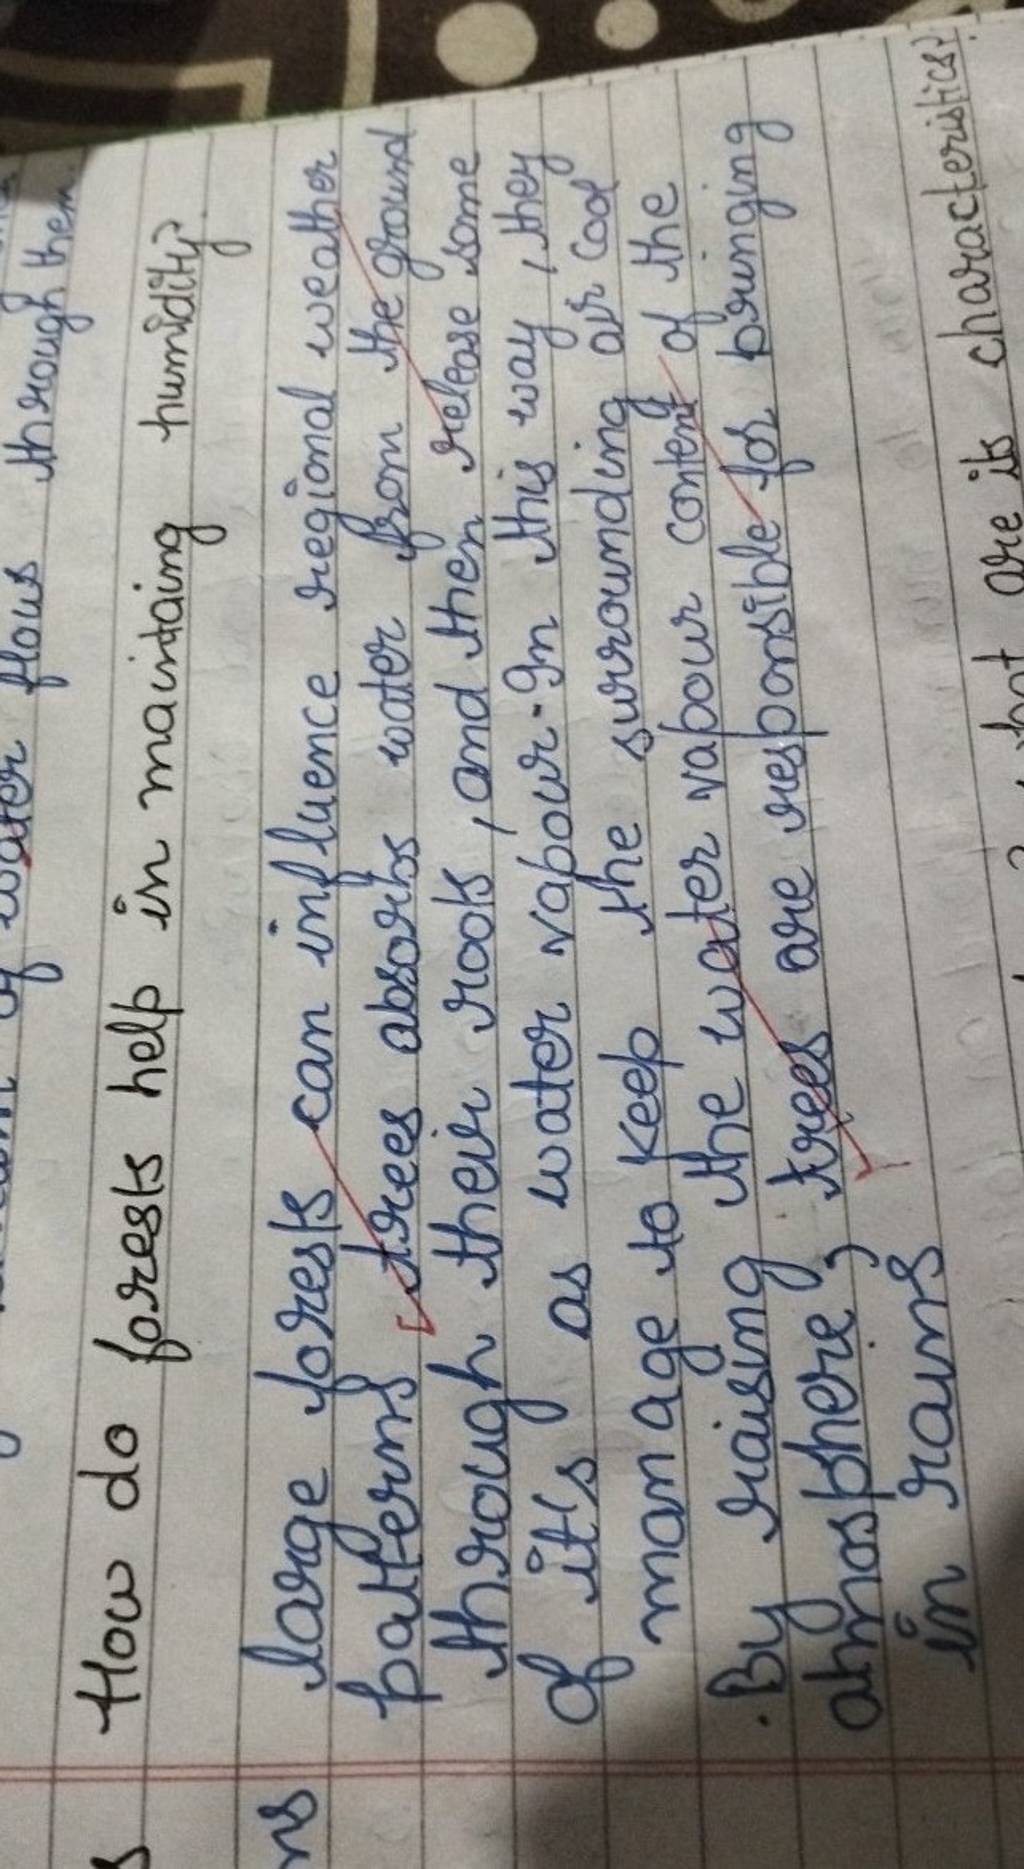 water flows through them
How do forests help in maintaing humidity?
ns large forests can influence regional weather
patterns trees absorbs water from the ground
through their roots, and then release some
of it's as water vapour. In this way, they
manage to keep the surrounding air cool
. By raising the water vapour content of the
atmosphere, trees are responsible for bringing
in rains
are its characteristics?